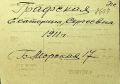 Графская
Екатерина Сергеевна
1911 г.
Б. Морская 17